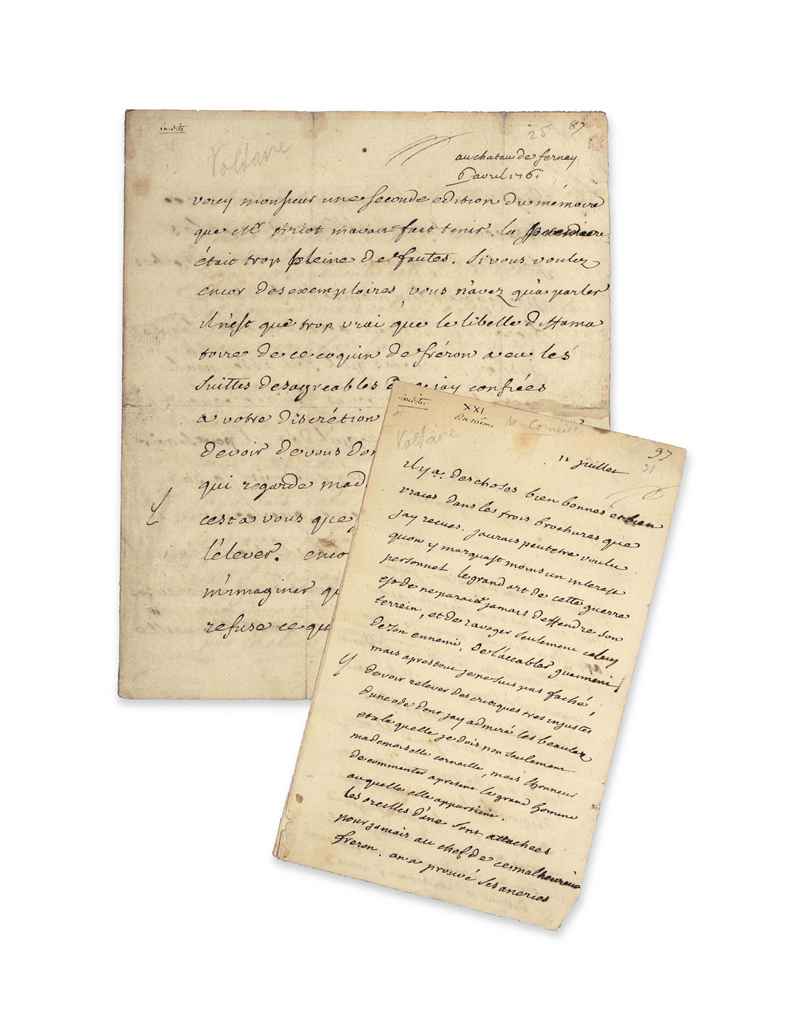 inédite
25 87
Voltaire
au chatau de fernay
6 avril 1761
voicy monsieur une seconde edition du mémoire
que Mr tiriot mavait fait tenir. la premiere
était trop pleine de fautes. si vous voulez
encor des exemplaires, vous n'avez qu'a parler
il n'est que trop vrai que le libelle diffama
toire de ce coquin de fréron a eu les
suittes desagreables que jay confiées
a votre discrétion
devoir de vous don
qui regarde mad
cest a vous que
l'élever. enco
m'imaginer qu
refuse ce qu
inédite
XXI
Voltaire
97
31
12 juillet
il y a des choses bien bonnes et bien
vraies dans les trois brochures que
jay recues. jaurais peutetre voulu
quon y marquast moins un interest
personnel le grand art de cette guerre
est de ne paraitre jamais deffendre son
terrein, et de ravager seulement celuy
de son ennemi, de l'accabler guaiment
mais apres tout je ne suis pas faché,
de voir relever des critiques tres injustes
d'une ode dont jay admiré les beautez
et a la quelle je dois non seulement
mademoiselle corneille, mais l'honneur
de commenter apresent le grand homme
auquel elle appartient.
les oreilles d'ane sont attachées
pour jamais au chef de ce malheureux
freron. on a prouvé ses aneries